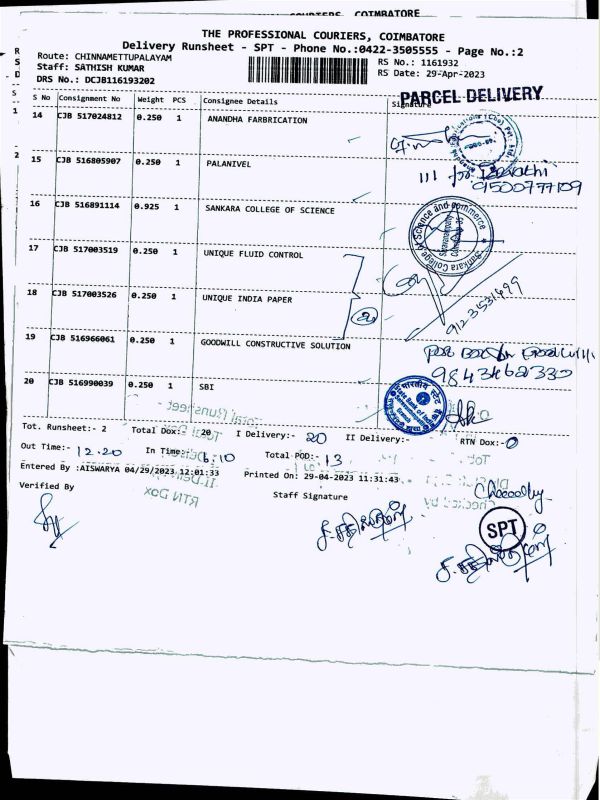 COURIERS, COIMBATORE
THE PROFESSIONAL COURIERS, COIMBATORE
Delivery Runsheet - SPT - Phone No.:0422-3505555 - Page No.:2
Route: CHINNAMETTUPALAYAM
RS No.: 1161932
Staff: SATHISH KUMAR
RS Date: 29-Apr-2023
DRS No.: DCJB116193202
PARCEL DELIVERY
S No Consignment No Weight PCS Consignee Details Signature
14 CJB 517024812 0.250 1 ANANDHA FARBRICATION
15 CJB 516805907 0.250 1 PALANIVEL
9500777109
16 CJB 516891114 0.925 1 SANKARA COLLEGE OF SCIENCE
Sankara College of Science and commerce
Saravanampatty
17 CJB 517003519 0.250 1 UNIQUE FLUID CONTROL
18 CJB 517003526 0.250 1 UNIQUE INDIA PAPER
9123531699
19 CJB 516966061 0.250 1 GOODWILL CONSTRUCTIVE SOLUTION
9843462330
20 CJB 516990039 0.250 1 SBI
भारतीय स्टेट
State Bank of India
Tot. Runsheet:- 2 Total Dox:- 20 I Delivery:- 20 II Delivery:- RTN Dox:- 0
Out Time:- 12.20 In Time:- 6.10 Total POD:- 13
Entered By :AISWARYA 04/29/2023 12:01:33 Printed On: 29-04-2023 11:31:43
Verified By Staff Signature
SPT